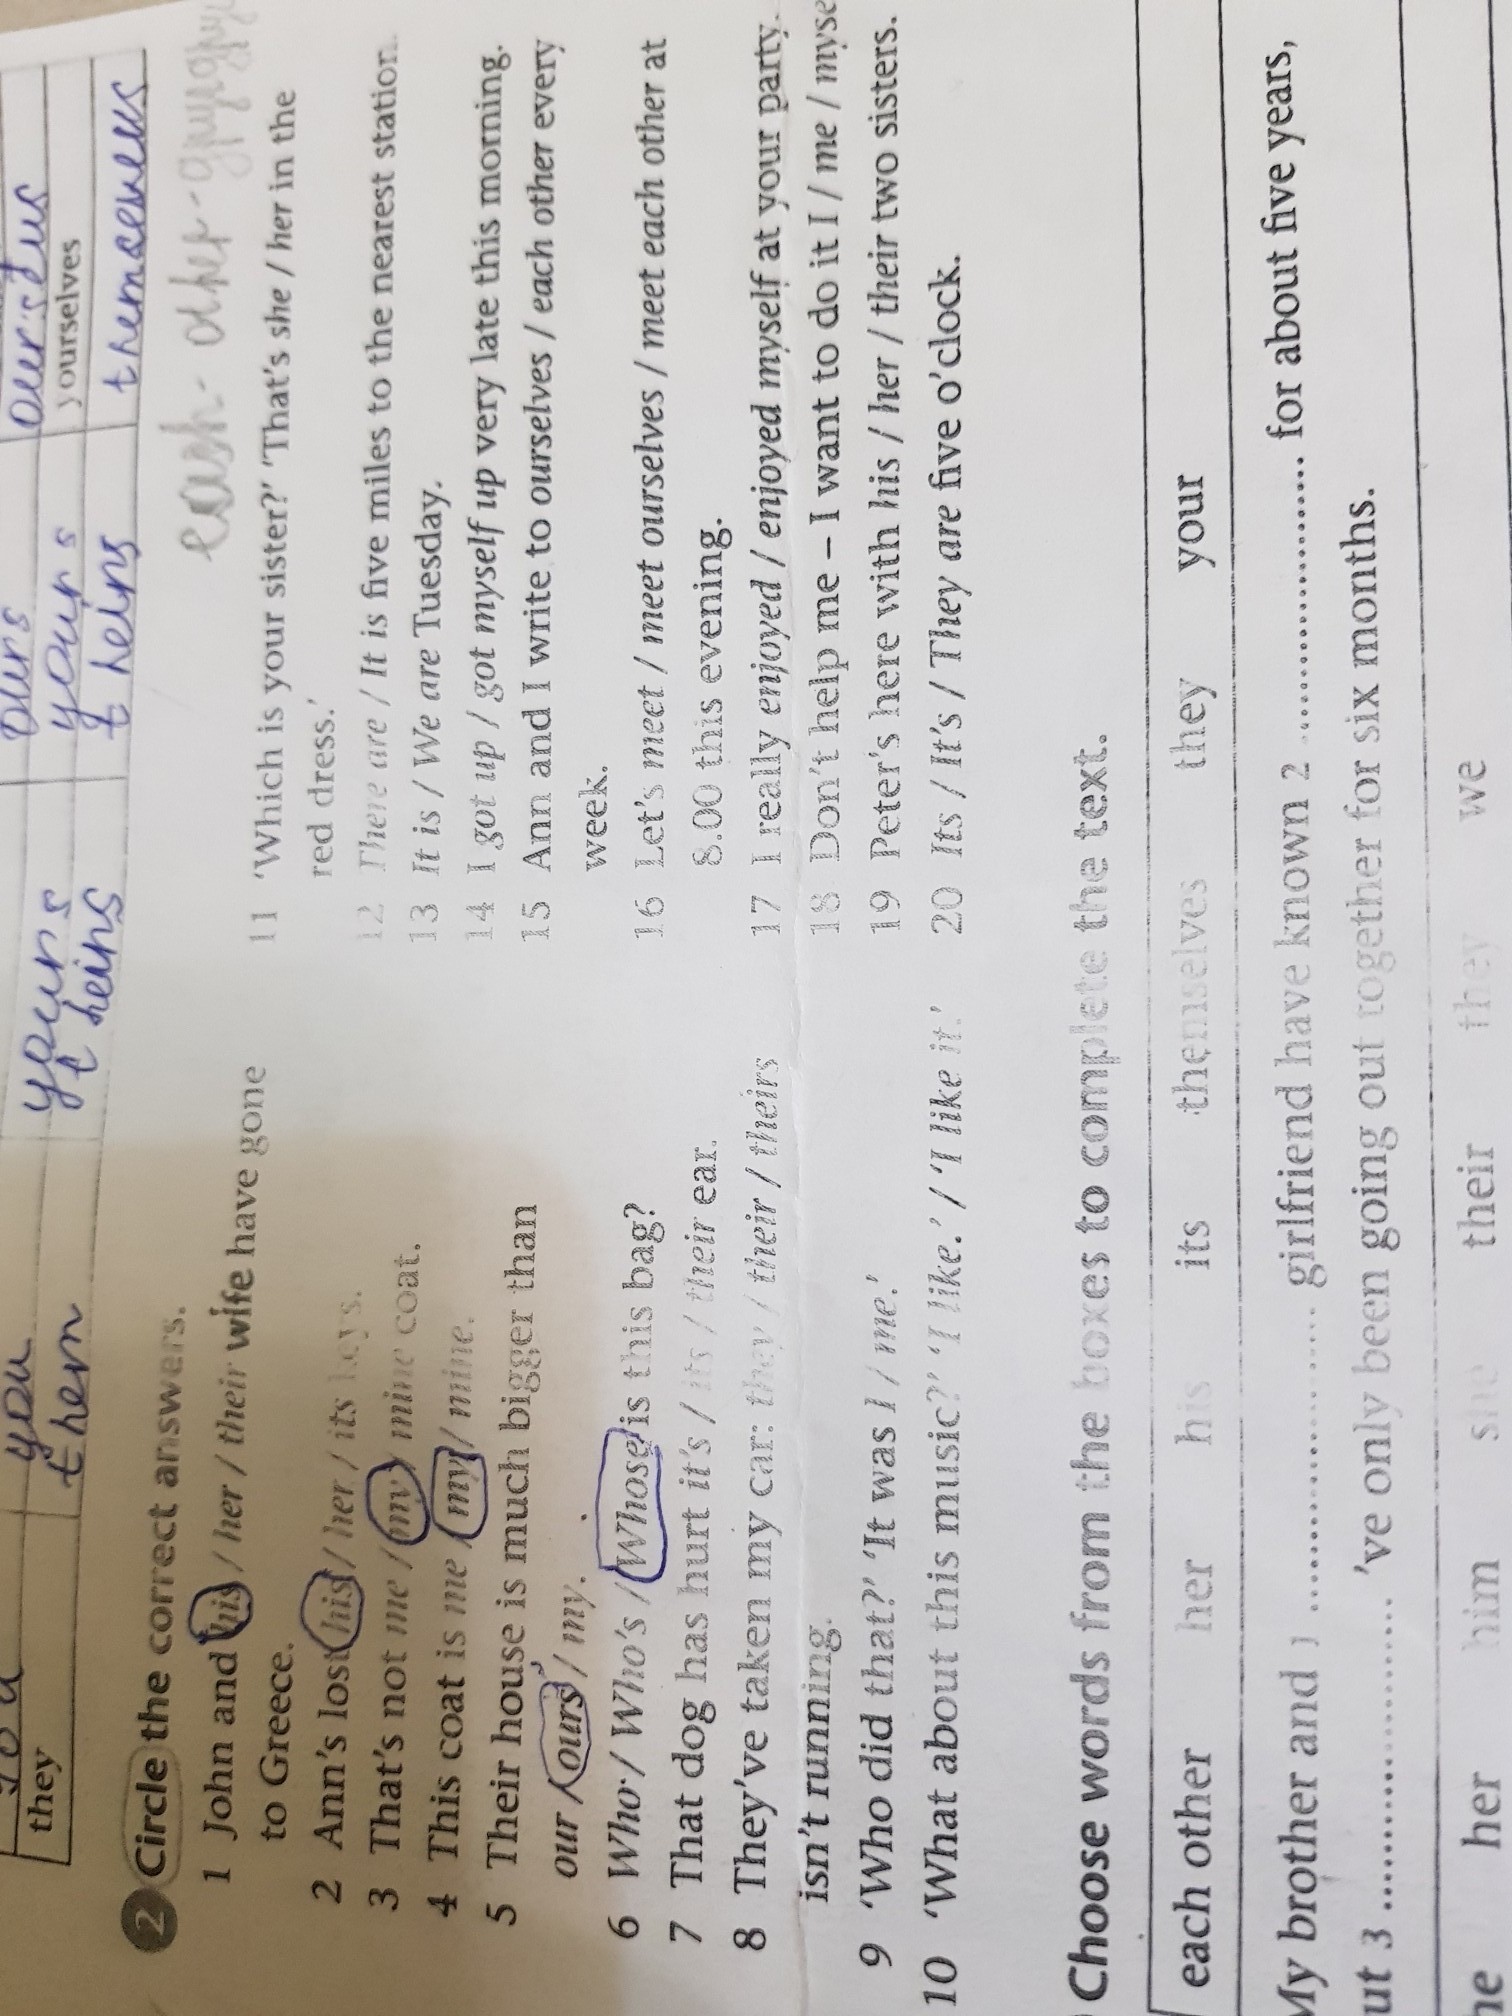 you ours oursdus
they you yours yours yourselves
them theirs theirs themselves
each-other-
2 Circle the correct answers.
1 John and his / her / their wife have gone
to Greece.
2 Ann's lost his / her / its keys.
3 That's not me / my / mine coat.
4 This coat is me / my / mine.
5 Their house is much bigger than
our / ours / my.
6 Who / Who's / Whose is this bag?
7 That dog has hurt it's / its / their ear.
8 They've taken my car: they / their / theirs
isn't running.
9 'Who did that?' 'It was I / me.'
10 'What about this music?' 'I like.' / 'I like it.'
11 'Which is your sister?' 'That's she / her in the
red dress.'
12 There are / It is five miles to the nearest station.
13 It is / We are Tuesday.
14 I got up / got myself up very late this morning.
15 Ann and I write to ourselves / each other every
week.
16 Let's meet / meet ourselves / meet each other at
8.00 this evening.
17 I really enjoyed / enjoyed myself at your party.
18 Don't help me – I want to do it I / me / myse
19 Peter's here with his / her / their two sisters.
20 Its / It's / They are five o'clock.
Choose words from the boxes to complete the text.
each other her his its themselves they your
My brother and 1 .................... girlfriend have known 2 .................... for about five years,
ut 3 .................... 've only been going out together for six months.
he her him she their they we